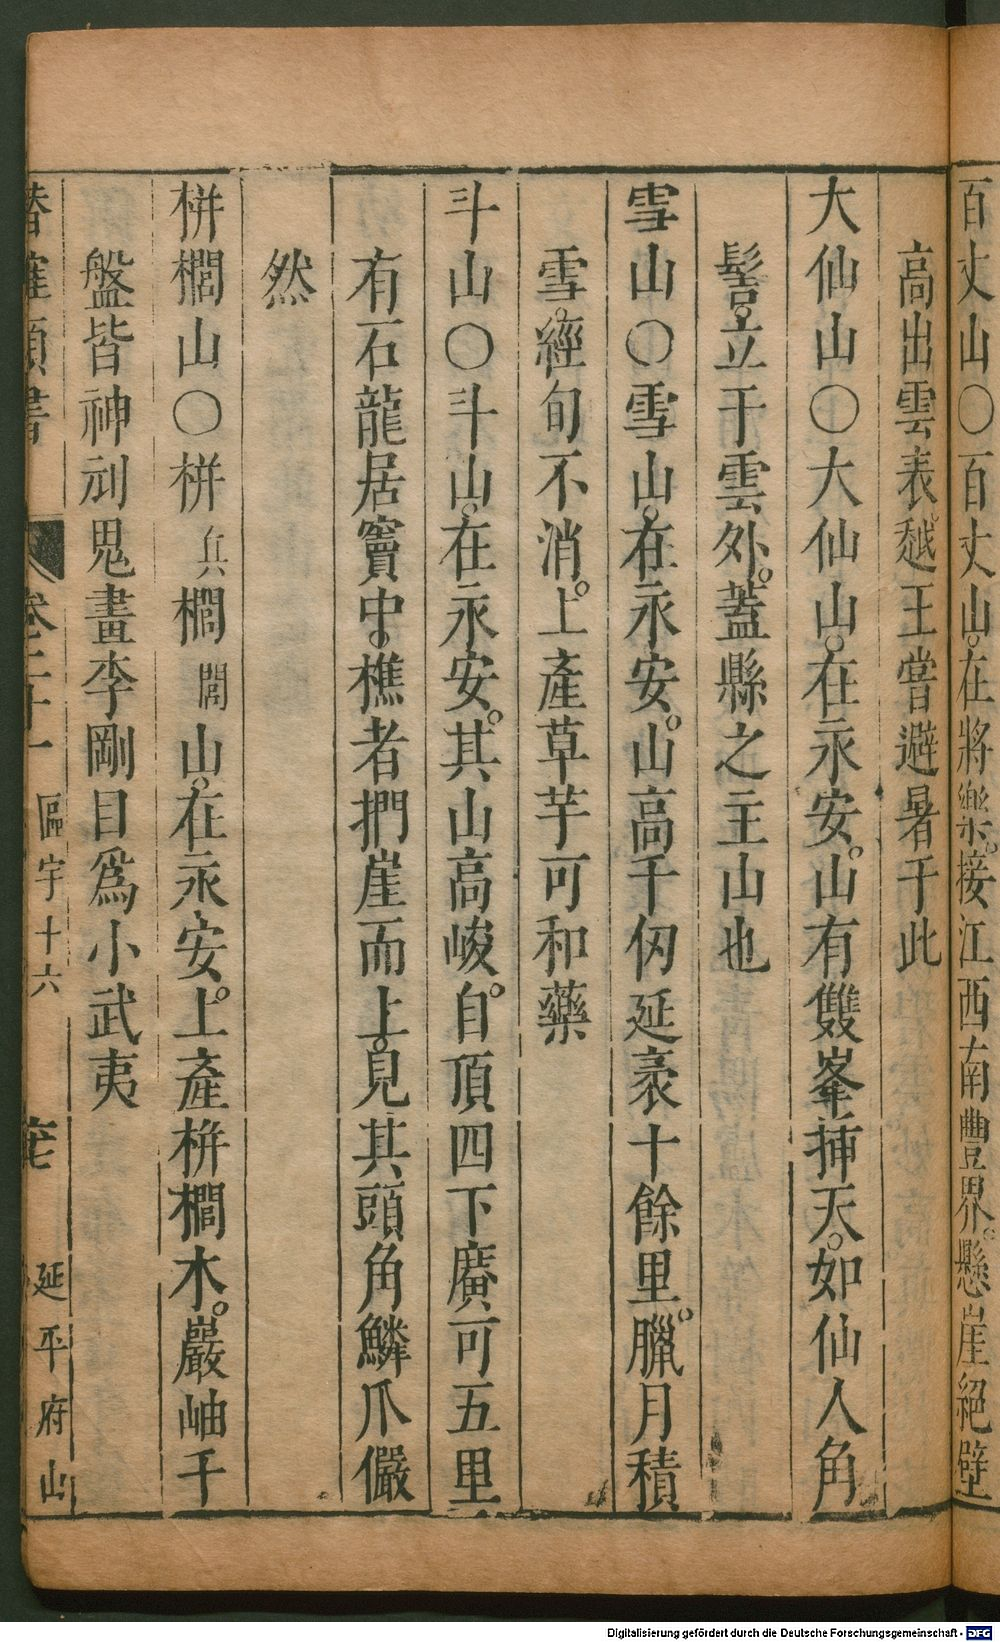 百丈山○百丈山。在將樂。接江西南豐界。懸崖絕壁
高出雲表。越王嘗避暑于此
大仙山○大仙山。在永安。山有雙峯挿天。如仙人角
髻。立于雲外。蓋縣之主山也
雪山○雪山。在永安。山高千仞延袤十餘里。臘月積
雪。經旬不消。上產草芋可和藥
斗山○斗山。在永安。其山高峻。自頂四下廣可五里
有石龍居竇中。樵者捫崖而上。見其頭角鱗爪儼
然
栟櫚山○栟兵櫚閭山。在永安。上產栟櫚木。巖岫千
盤皆神刓鬼畫李剛目爲小武夷
類書 卷二十一 區宇十六 延平府山
Digitalisierung gefördert durch die Deutsche Forschungsgemeinschaft - DFG